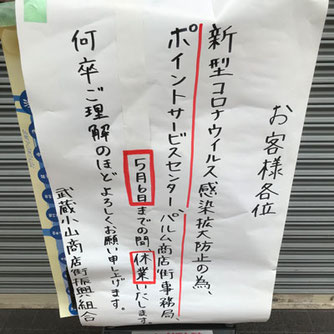 お客様各位
新型コロナウイルス感染拡大防止の為、
ポイントサービスセンター、パルム商店街事務局、
5月6日までの間、休業いたします。
何卒ご理解のほどよろしくお願い申し上げます。
武蔵小山商店街振興組合